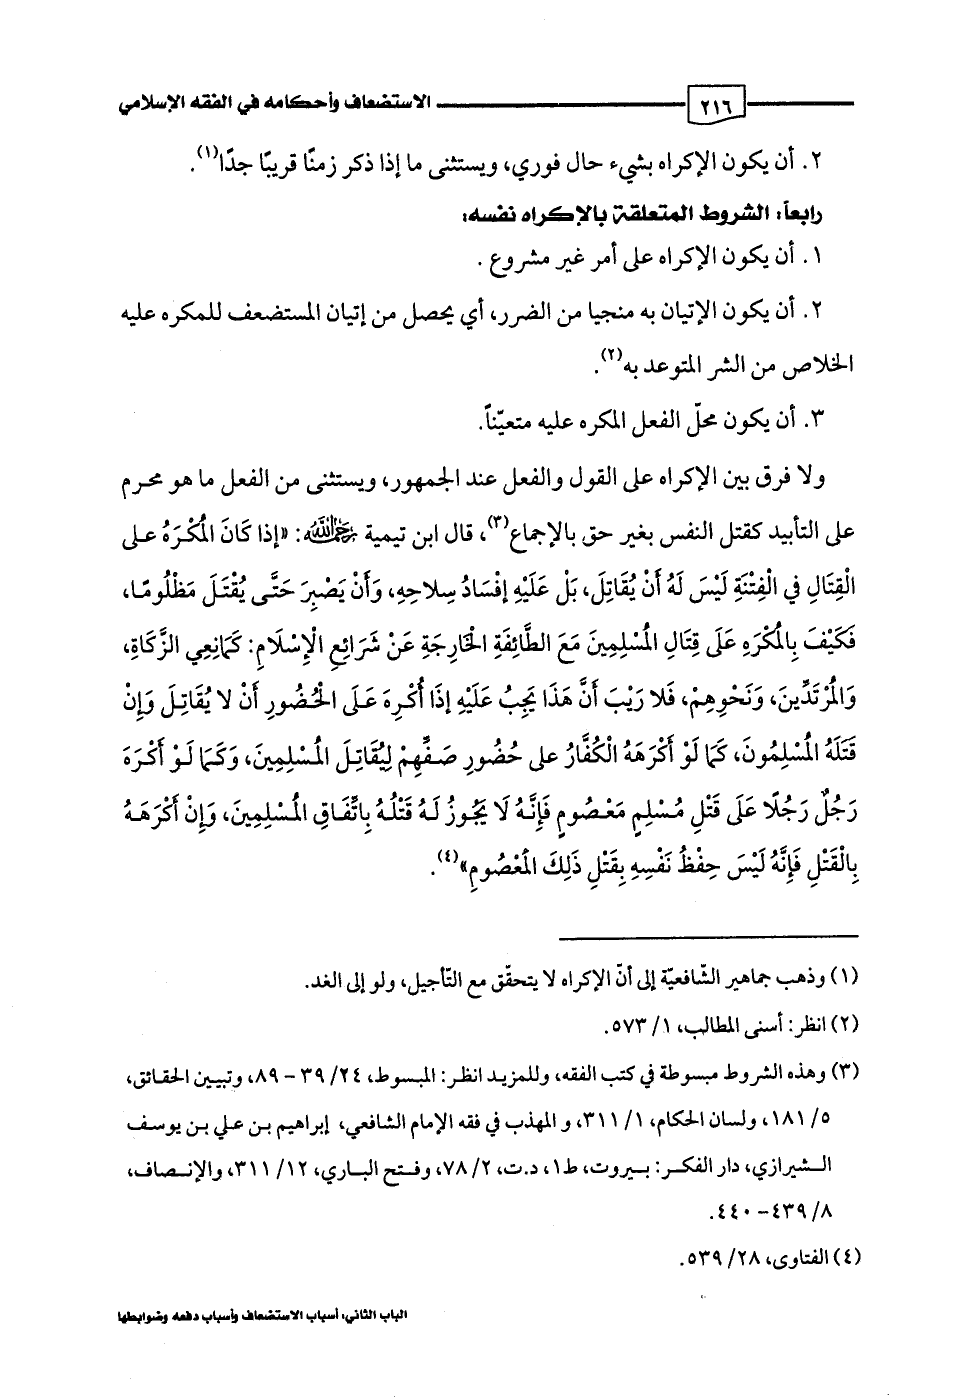 ٢١٦ الاستضعاف وأحكامه في الفقه الإسلامي
٢. أن يكون الإكراه بشيء حال فوري، ويستثنى ما إذا ذكر زمنًا قريبًا جدًا(١).
رابعاً: الشروط المتعلقة بالإكراه نفسه:
١. أن يكون الإكراه على أمر غير مشروع .
٢. أن يكون الإتيان به منجيا من الضرر، أي يحصل من إتيان المستضعف للمكره عليه
الخلاص من الشر المتوعد به(٢).
٣. أن يكون محلّ الفعل المكره عليه متعيّناً.
ولا فرق بين الإكراه على القول والفعل عند الجمهور، ويستثنى من الفعل ما هو محرم
على التأبيد كقتل النفس بغير حق بالإجماع(٣)، قال ابن تيمية رحمه الله: «إذا كَانَ الْمُكْرَهُ على
الْقِتَالِ في الْفِتْنَةِ لَيْسَ لَهُ أَنْ يُقَاتِلَ، بَلْ عَلَيْهِ إفْسَادُ سِلاحِهِ، وَأَنْ يَصْبِرَ حَتَّى يُقْتَلَ مَظْلُومًا،
فَكَيْفَ بِالْمُكْرَهِ عَلَى قِتَالِ الْمُسْلِمِينَ مَعَ الطَّائِفَةِ الْخَارِجَةِ عَنْ شَرَائِعِ الْإِسْلَامِ: كَمَانِعِي الزَّكَاةِ،
وَالْمُرْتَدِّينَ، وَنَحْوِهِمْ، فَلا رَيْبَ أَنَّ هَذَا يَجِبُ عَلَيْهِ إذَا أُكْرِهَ عَلَى الْحُضُورِ أَنْ لا يُقَاتِلَ وَإِنْ
قَتَلَهُ الْمُسْلِمُونَ، كَمَا لَوْ أَكْرَهَهُ الْكُفَّارُ على حُضُورِ صَفِّهِمْ لِيُقَاتِلَ الْمُسْلِمِينَ، وَكَمَا لَوْ أَكْرَهَ
رَجُلٌ رَجُلًا عَلَى قَتْلِ مُسْلِمٍ مَعْصُومٍ فَإِنَّهُ لَا يَجُوزُ لَهُ قَتْلُهُ بِاتِّفَاقِ الْمُسْلِمِينَ، وَإِنْ أَكْرَهَهُ
بِالْقَتْلِ فَإِنَّهُ لَيْسَ حِفْظُ نَفْسِهِ بِقَتْلِ ذَلِكَ الْمَعْصُومِ»(٤).
(١) وذهب جماهير الشّافعيّة إلى أنّ الإكراه لا يتحقّق مع التّأجيل، ولو إلى الغد.
(٢) انظر: أسنى المطالب، ١/ ٥٧٣.
(٣) وهذه الشروط مبسوطة في كتب الفقه، وللمزيد انظر: المبسوط، ٢٤/ ٣٩ – ٨٩، وتبيين الحقائق،
٥/ ١٨١، ولسان الحكام، ١/ ٣١١، و المهذب في فقه الإمام الشافعي، إبراهيم بن علي بن يوسف
الشيرازي، دار الفكر: بيروت، ط١، د.ت، ٢/ ٧٨، وفتح الباري، ١٢/ ٣١١، والإنصاف،
٨/ ٤٣٩ – ٤٤٠.
(٤) الفتاوى، ٢٨/ ٥٣٩.
الباب الثاني: أسباب الاستضعاف وأسباب دفعه وضوابطها